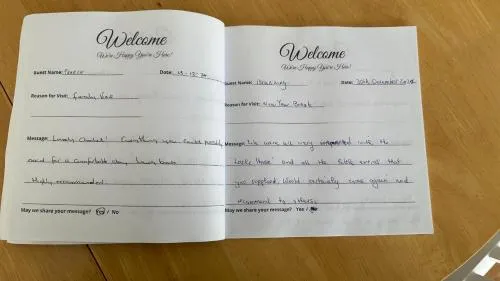 Welcome
We're Happy You're Here!
Guest Name:
Date:
Reason for Visit: Family Visit
Message: Lovely Chalet! Everything you could possibly
need for a comfortable stay,
Highly recommended.
May we share your message? Yes / No
Welcome
We're Happy You're Here!
Guest Name:
Date: 30th December 2024
Reason for Visit: New Year Break
Message: We were very impressed with the
and all the little extras that
you supplied. Would certainly come again and
recommend to others.
May we share your message? Yes /